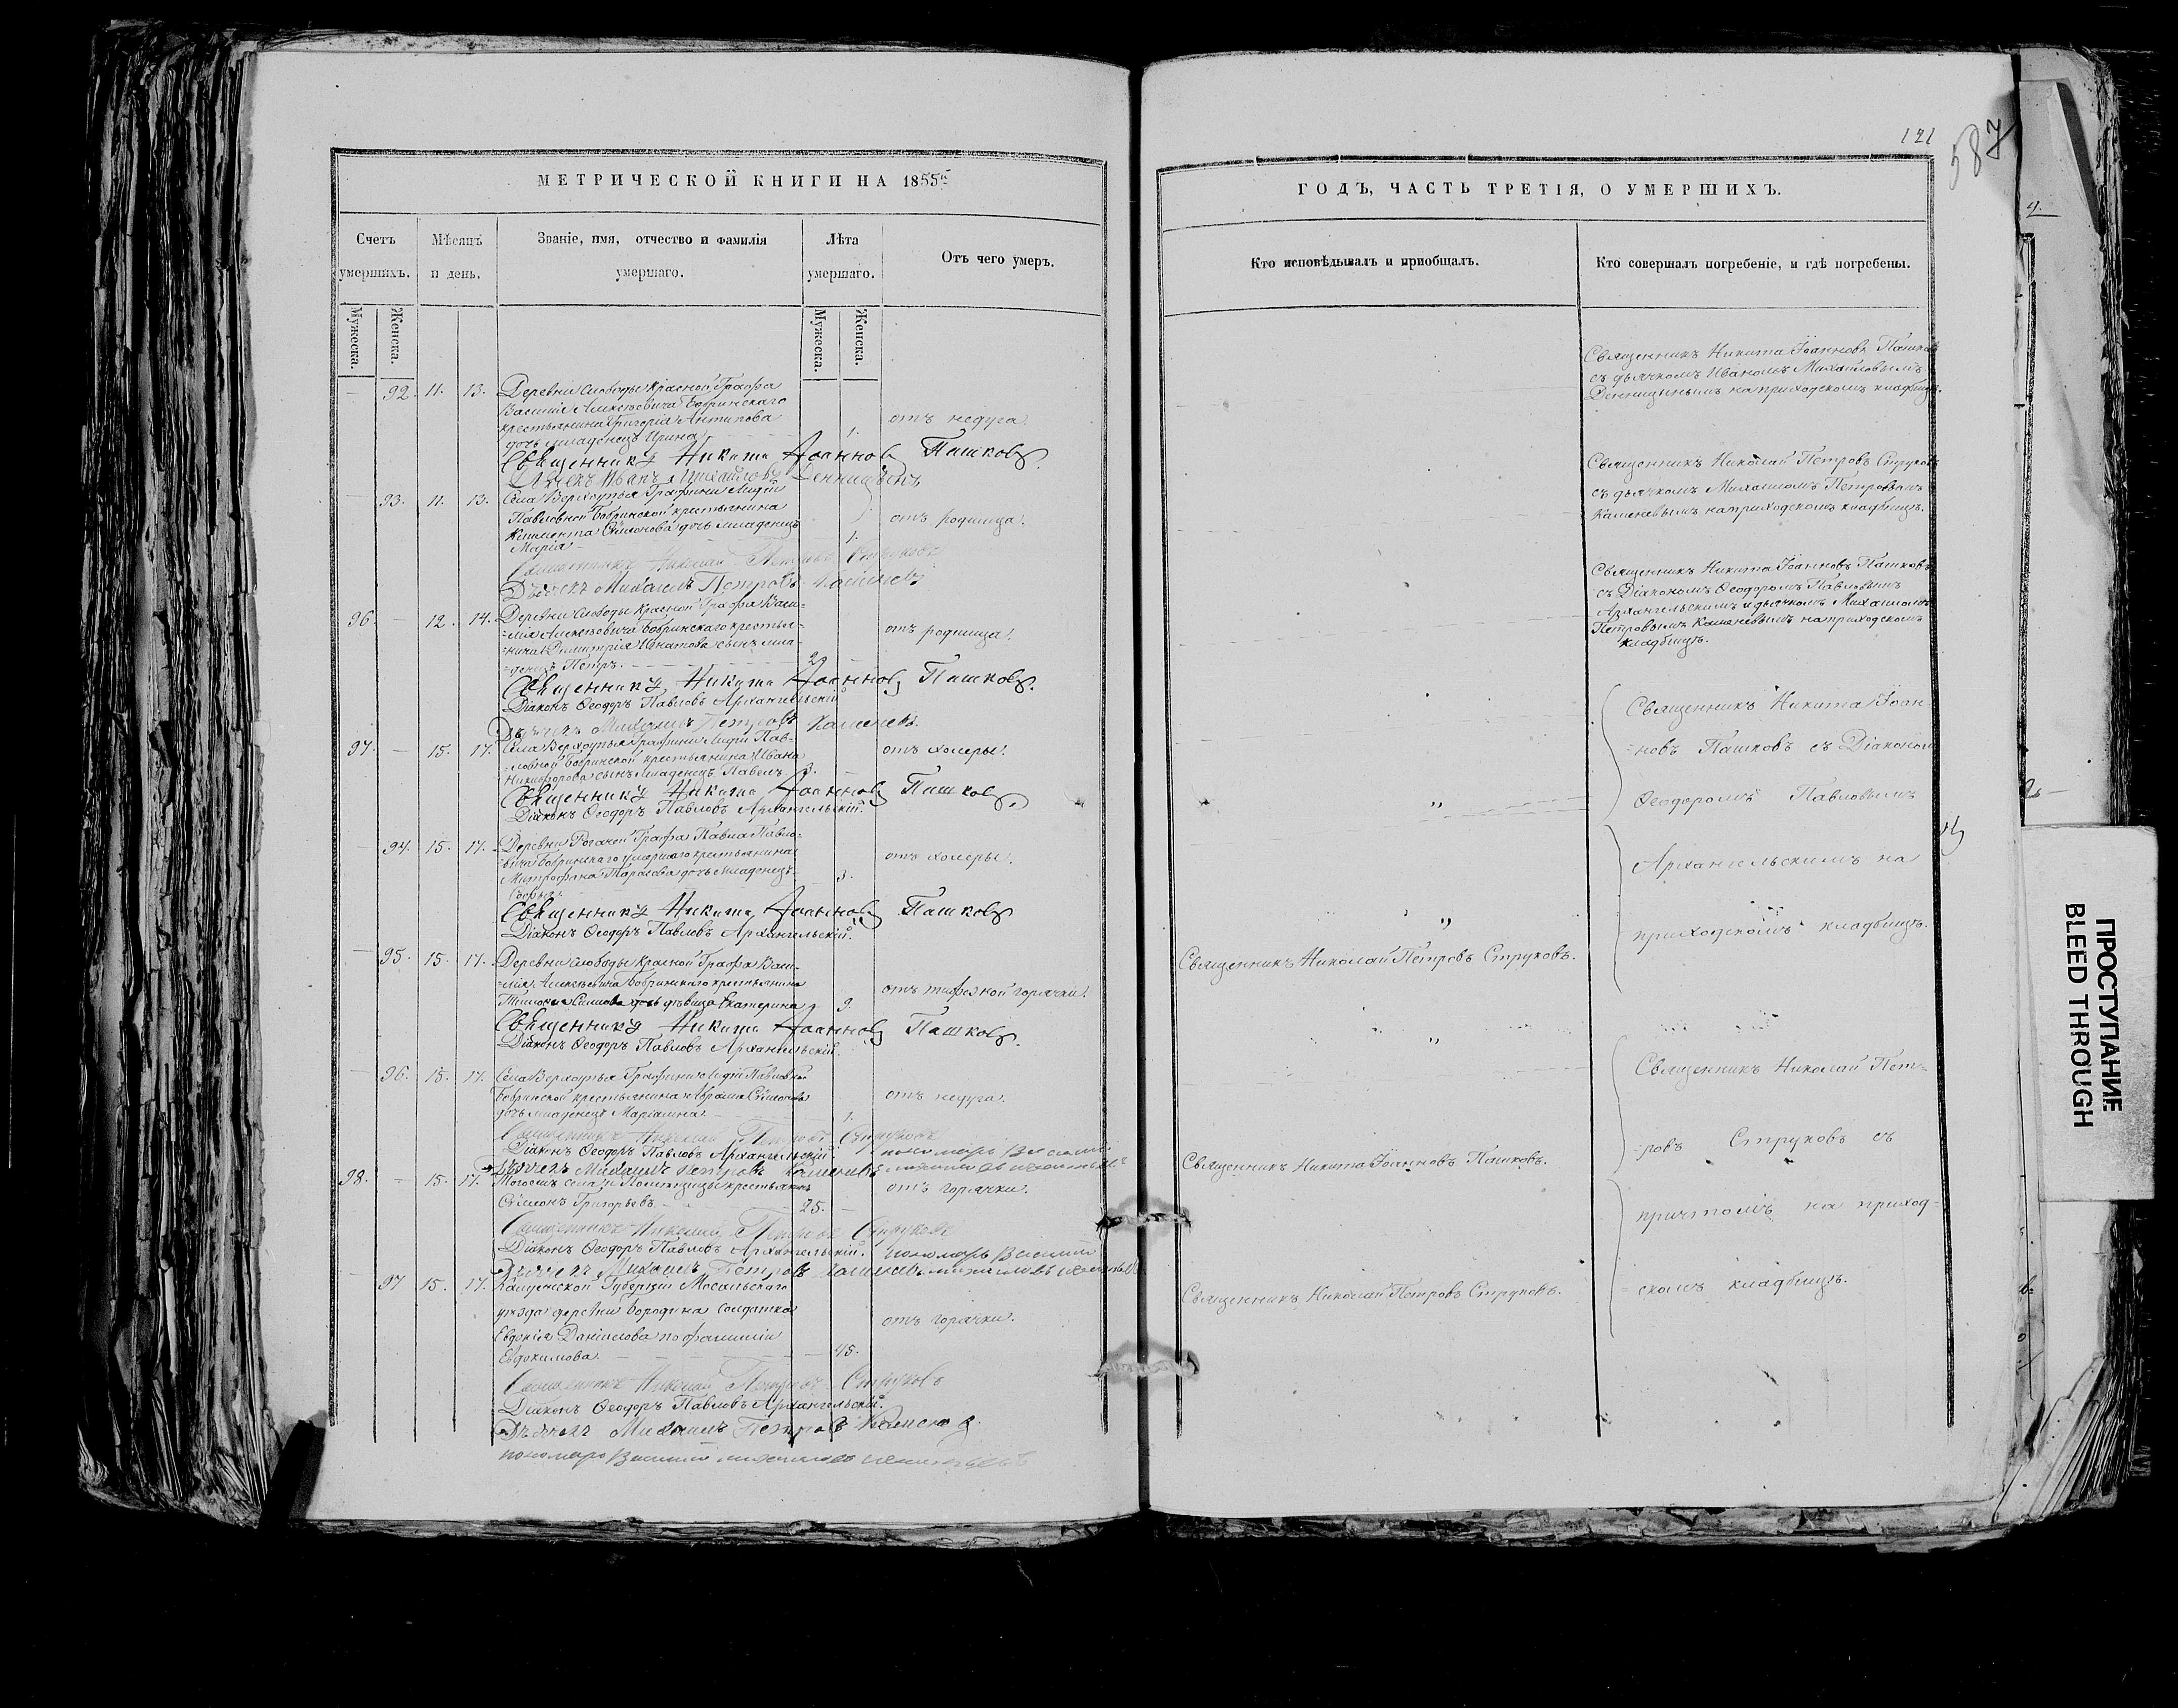 МЕТРИЧЕСКОЙ КНИГИ НА 1855й
Счетъ умершихъ.
Мужеска.
Женска.
Мѣсяцъ и день.
Званіе, имя, отчество и фамилія умершаго.
Лѣта умершаго.
Мужеска.
Женска.
Отъ чего умеръ.
— 92. 11. 13. Деревни Слободы Красной Графа
Василія Алексѣевича Бобринскаго
крестьянина Григорія Антипова
дочь младенецъ Ирина. 1. отъ недуга.
Священникъ Никита Іоанновъ Пашковъ.
Дьячекъ Иванъ Михайловъ Денницынъ
— 93. 11. 13. Села Верхоупья Графини Лидіи
Павловной Бобринской крестьянина
Климента Симонова дочь младенецъ
Марія 1. отъ родимца.
Священникъ Николай Петровъ Струковъ
Дьячекъ Михаилъ Петровъ Каменевъ
96. — 12. 14. Деревни Слободы Красной Графа Васи-
=лія Алексѣевича Бобринскаго крестья-
=нина Димитрія Игнатова сынъ мла-
=денецъ Петръ. 2 отъ родимца.
Священникъ Никита Іоанновъ Пашковъ.
Діаконъ Ѳеодоръ Павловъ Архангельскій
Дьячекъ Михаилъ Петровъ Каменевъ.
97. — 15. 17. Села Верхоупья Графини Лидіи Пав-
=ловной Бобринской крестьянина Ивана
Никифорова сынъ младенецъ Павелъ 3. отъ холеры.
Священникъ Никита Іоанновъ Пашковъ.
Діаконъ Ѳеодоръ Павловъ Архангельскій.
— 94. 15. 17. Деревни Рогачей Графа Павла Павло-
=вича Бобринскаго умершаго крестьянина
Митрофана Тарасова дочь младенецъ
3. отъ холеры.
Священникъ Никита Іоанновъ Пашковъ
Діаконъ Ѳеодоръ Павловъ Архангельскій.
— 95. 15. 17. Деревни Слободы Красной Графа Васи-
=лія Алексѣевича Бобринскаго крестьянина
дочь дѣвица Екатерина 9. отъ горячки.
Священникъ Никита Іоанновъ Пашковъ.
Діаконъ Ѳеодоръ Павловъ Архангельскій.
— 96. 15. 17. Села Верхоупья Графини Лидіи Павловной
Бобринской крестьянина Аврама Симонова
дочь младенецъ Маріамна. 1. отъ недуга.
Священникъ Николай Петровъ Струковъ
Діаконъ Ѳеодоръ Павловъ Архангельскій пономарь Василій
Дьячекъ Михаилъ Петровъ Каменевъ
98. — 15. 17. Тогожъ села крестьянинъ
Симеонъ Григорьевъ. 25. — отъ горячки.
Священникъ Николай Петровъ Струковъ
Діаконъ Ѳеодоръ Павловъ Архангельскій. пономарь Василій
Дьячекъ Михаилъ Петровъ Каменевъ
— 97 15. 17. Калужской Губерніи Мосальскаго
уѣзда деревни Бородина солдатка
Евдокія Даніилова по фамиліи
Евдокимова. 45. отъ горячки.
Священникъ Николай Петровъ Струковъ
Діаконъ Ѳеодоръ Павловъ Архангельскій.
Дьячекъ Михаилъ Петровъ Каменевъ
пономарь Василій
121
587
ГОДЪ, ЧАСТЬ ТРЕТІЯ, О УМЕРШИХЪ.
Кто исповѣдывалъ и приобщалъ.
Кто совершалъ погребеніе, и гдѣ погребены.
Священникъ Никита Іоанновъ Пашковъ
съ дьячкомъ Иваномъ Михайловымъ
Денницынымъ на приходскомъ кладбищѣ.
Священникъ Николай Петровъ Струковъ
съ дьячкомъ Михаиломъ Петровымъ
Каменевымъ на приходскомъ кладбищѣ.
Священникъ Никита Іоанновъ Пашковъ
съ Діакономъ Ѳеодоромъ Павловымъ
Архангельскимъ и дьячкомъ Михаиломъ
Петровымъ Каменевымъ на приходскомъ
кладбищѣ.
Священникъ Никита Іоан-
=новъ Пашковъ съ Діакономъ
Ѳеодоромъ Павловымъ
Архангельскимъ на
приходскомъ кладбищѣ.
Священникъ Николай Петровъ Струковъ.
Священникъ Николай Пет-
=ровъ Струковъ съ
Священникъ Никита Іоанновъ Пашковъ.
причтомъ на приход-
=скомъ кладбищѣ.
Священникъ Николай Петровъ Струковъ.
ПРОСТУПАНИЕ
BLEED THROUGH